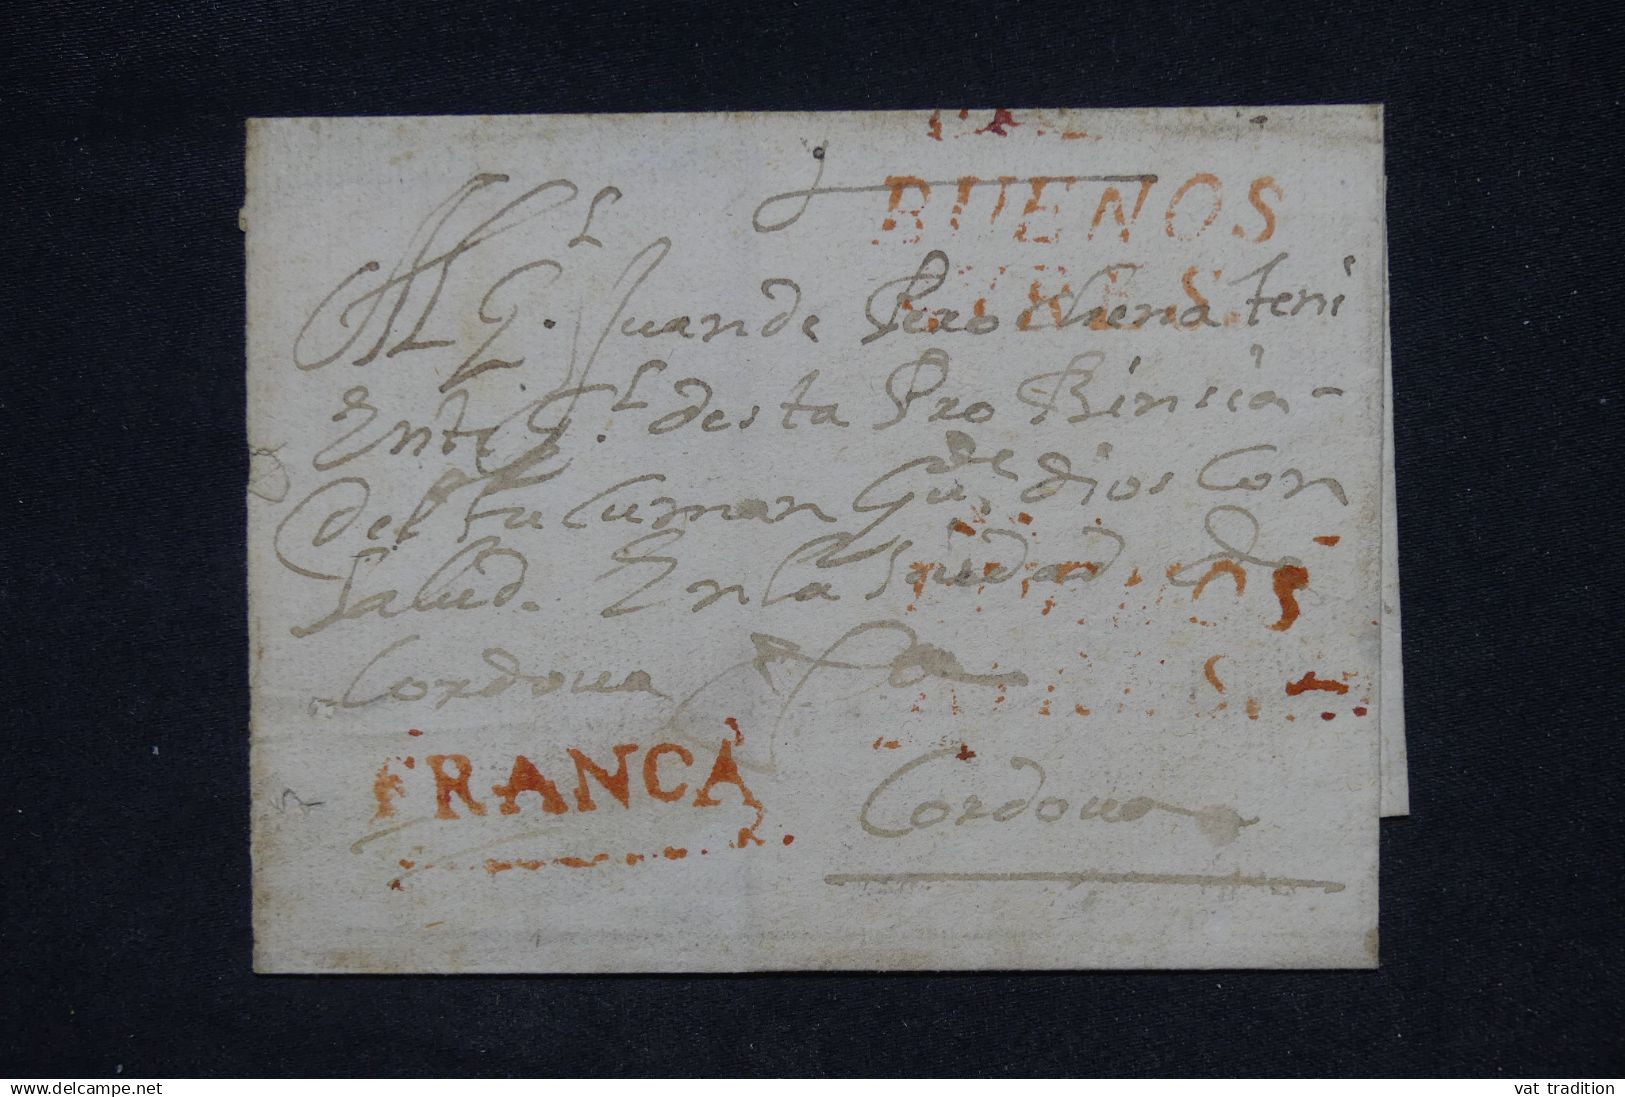 BUENOS
AYRES
Al S.ʳ G.ˡ Juan de Perochena teni
Ente G.ˡ desta Pro Binsia-
del tucuman Gu.ᵈᵉ dios Con
Salud. En la Siudad de
Cordova
FRANCA
Cordova
www.delcampe.net
vat_tradition